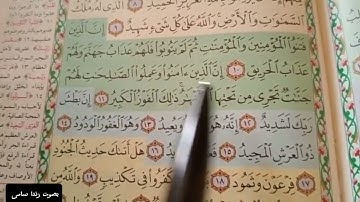 السَّمَٰوَٰتِ وَٱلْأَرْضِ وَٱللَّهُ عَلَىٰ كُلِّ شَىْءٍ شَهِيدٌ ٩ إِنَّ ٱلَّذِينَ
فَتَنُوا۟ ٱلْمُؤْمِنِينَ وَٱلْمُؤْمِنَٰتِ ثُمَّ لَمْ يَتُوبُوا۟ فَلَهُمْ عَذَابُ جَهَنَّمَ وَلَهُمْ
عَذَابُ ٱلْحَرِيقِ ١٠ إِنَّ ٱلَّذِينَ ءَامَنُوا۟ وَعَمِلُوا۟ ٱلصَّٰلِحَٰتِ لَهُمْ
جَنَّٰتٌ تَجْرِى مِن تَحْتِهَا ذَٰلِكَ ٱلْفَوْزُ ٱلْكَبِيرُ ١١ إِنَّ بَطْشَ
رَبِّكَ لَشَدِيدٌ ١٢ إِنَّهُۥ هُوَ وَيُعِيدُ ١٣ وَهُوَ ٱلْغَفُورُ ٱلْوَدُودُ ١٤
ذُو ٱلْعَرْشِ ٱلْمَجِيدُ ١٥ ١٦ هَلْ أَتَىٰكَ حَدِيثُ ٱلْجُنُودِ
١٧ فِرْعَوْنَ وَثَمُودَ ١٨ كَفَرُوا۟ فِى تَكْذِيبٍ ١٩ وَٱللَّهُ مِن
بصوت رندا صامى